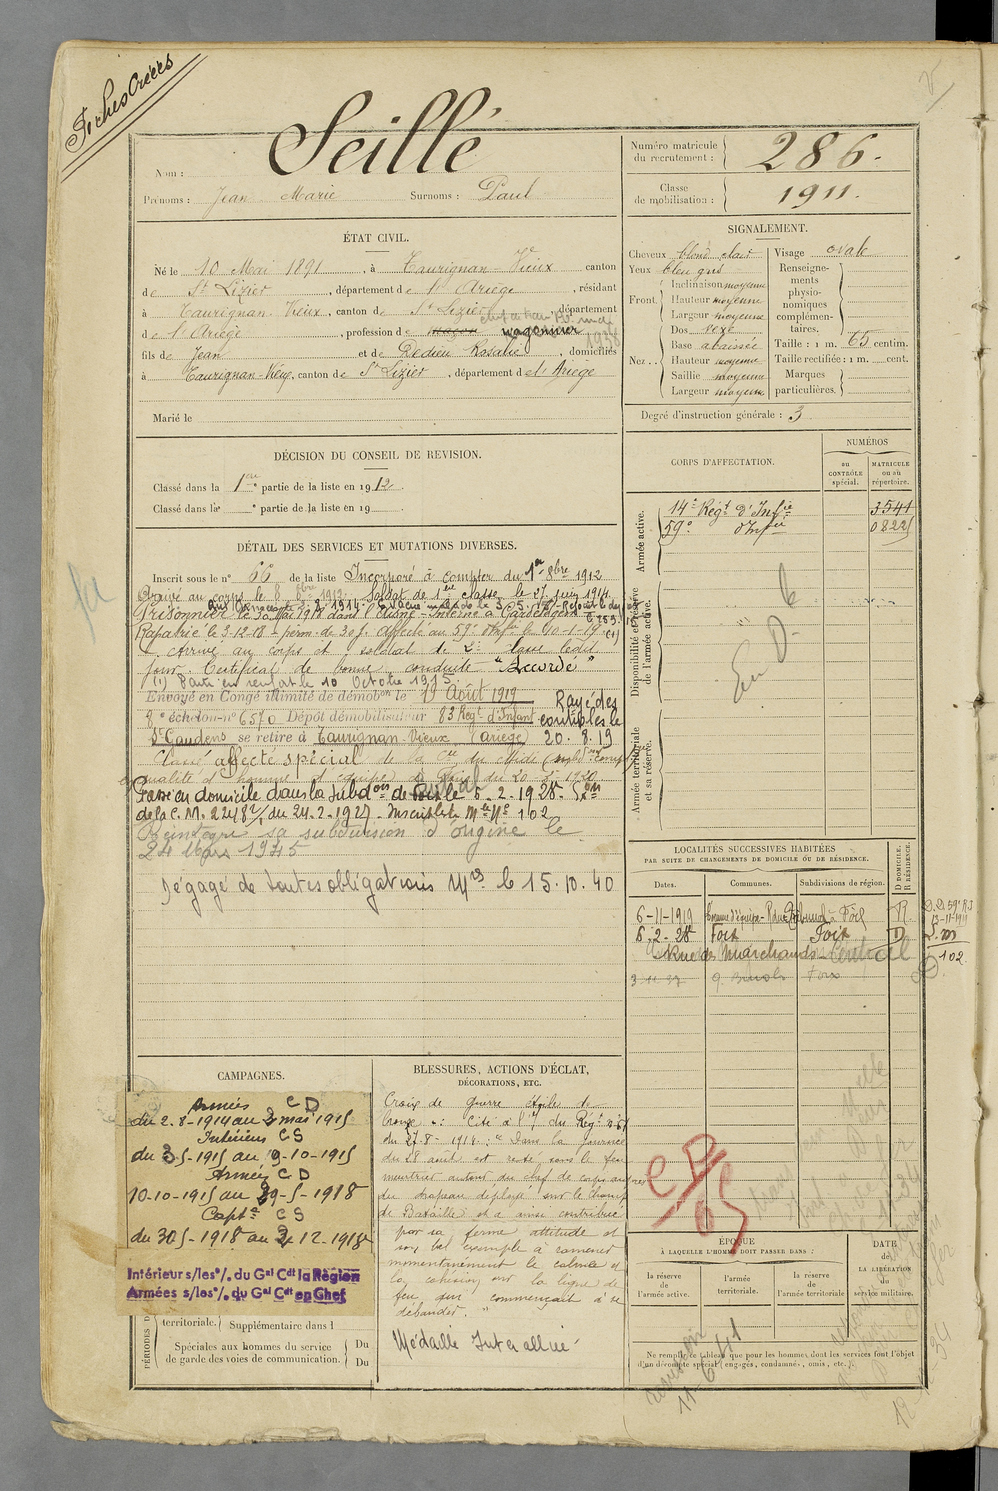 Fiches Créées
Nom : Seillé
Prénoms : Jean Marie Surnoms : Paul
Numéro matricule du recrutement : 286.
Classe de mobilisation : 1911.
ÉTAT CIVIL.
Né le 10 Mai 1891, à Taurignan-Vieux canton
de St Lizier, département de l'Ariège, résidant
à Taurignan-Vieux, canton de St Lizier, département
d e l'Ariège, profession de maçon wagonnier
1938
fils de Jean et de Dedieu Rosalie, domiciliés
à Taurignan-Vieux, canton de St Lizier, département de l'Ariège
Marié le
SIGNALEMENT.
Cheveux blond clair
Yeux bleu gris
Front. Inclinaison moyenne
Hauteur moyenne
Largeur moyenne
Nez Dos vexe
Base abaissée
Hauteur moyenne
Saillie moyenne
Largeur moyenne
Visage ovale
Renseignements physionomiques complémentaires.
Taille : 1 m. 65 centim.
Taille rectifiée : 1 m. cent.
Marques particulières.
Degré d'instruction générale : 3
DÉCISION DU CONSEIL DE REVISION.
Classé dans la 1ère partie de la liste en 1912.
Classé dans la e partie de la liste en 19
CORPS D'AFFECTATION.
NUMÉROS
au CONTRÔLE spécial.
MATRICULE ou au répertoire.
Armée active.
14e Régt d'Infie 3541
59e d'Infie 0822
Disponibilité et réserve de l'armée active.
Armée territoriale et sa réserve.
DÉTAIL DES SERVICES ET MUTATIONS DIVERSES.
Inscrit sous le n° 66 de la liste Incorporé à compter du 1er 8bre 1912
Arrivé au corps le 8 8bre 1912. Soldat de 1ère classe le 27 juin 1914.
Aux Armées le 2-8-1914. Evacué malade le 3-5-15
Prisonnier le 30 Mai 1918 dans l'Aisne. Interné à Gardelegen
Rapatrié le 3-12-18 - perm. de 30 j. Affecté au 59e d'Infie le 10-1-19 (1)
Arrivé au corps et soldat de 2e classe ledit
jour. Certificat de bonne conduite "Accordé"
(1) Parti en renfort le 10 Octobre 1915
Envoyé en Congé illimité de démobon le 19 Août 1919
8e échelon-n° 6570 Dépôt démobilisateur 83 Régt d'Infant
St Gaudens se retire à Taurignan-Vieux (Ariège)
Rayé des contrôles le 20.8.19
Classé affecté spécial de la Cie du Midi
qualité d'homme d'équipe à Foix du 20-5-1920
Passé en domicile dans la Subdon de Foix le 6-2-1928
de la C. M. 22482/1 du 24-2-1927. Inscrit liste Mle Ne 102
Réintègre sa subdivision d'origine le
24 Mars 1945
Dégagé de toutes obligations Mres le 15.10.40
LOCALITÉS SUCCESSIVES HABITÉES
PAR SUITE DE CHANGEMENTS DE DOMICILE OU DE RÉSIDENCE.
Dates. Communes. Subdivisions de région. D DOMICILE. R RÉSIDENCE.
6-11-1919 Foix R
6.2.28 Foix Foix D
Rue des Marchands
3-11-37 Foix
102
CAMPAGNES.
Armées CD
du 2-8-1914 au 2 mai 1915
Intérieur CS
du 3-5-1915 au 9-10-1915
Armées CD
10-10-1915 au 29-5-1918
Capté CS
du 30-5-1918 au 2-12-1918
Intérieur s/les °/. du Gal Cdt la Région
Armées s/les °/. du Gal Cdt en Chef
PÉRIODES D
territoriale. Supplémentaire dans l
Spéciales aux hommes du service de garde des voies de communication. Du
Du
BLESSURES, ACTIONS D'ÉCLAT,
DÉCORATIONS, ETC.
Croix de guerre étoile de
bronze : Cité à l'o/ du Régt
du 27-8-1914 : "Dans la journée
du 28 août est resté sous le feu
meurtrier autour du chef de corps auprès
du drapeau déployé sur le champ
de Bataille et a ainsi contribué
par sa ferme attitude et
son bel exemple à ramener
momentanément le calme et
la cohésion sur la ligne de
feu qui commençait à se
débander."
Médaille Interalliée
ÉPOQUE
À LAQUELLE L'HOMME DOIT PASSER DANS :
la réserve de l'armée active.
l'armée territoriale.
la réserve de l'armée territoriale
DATE de LA LIBÉRATION du service militaire.
Ne remplir ce tableau que pour les hommes dont les services font l'objet
d'un décompte spécial (engagés, condamnés, omis, etc.)
11-6-41